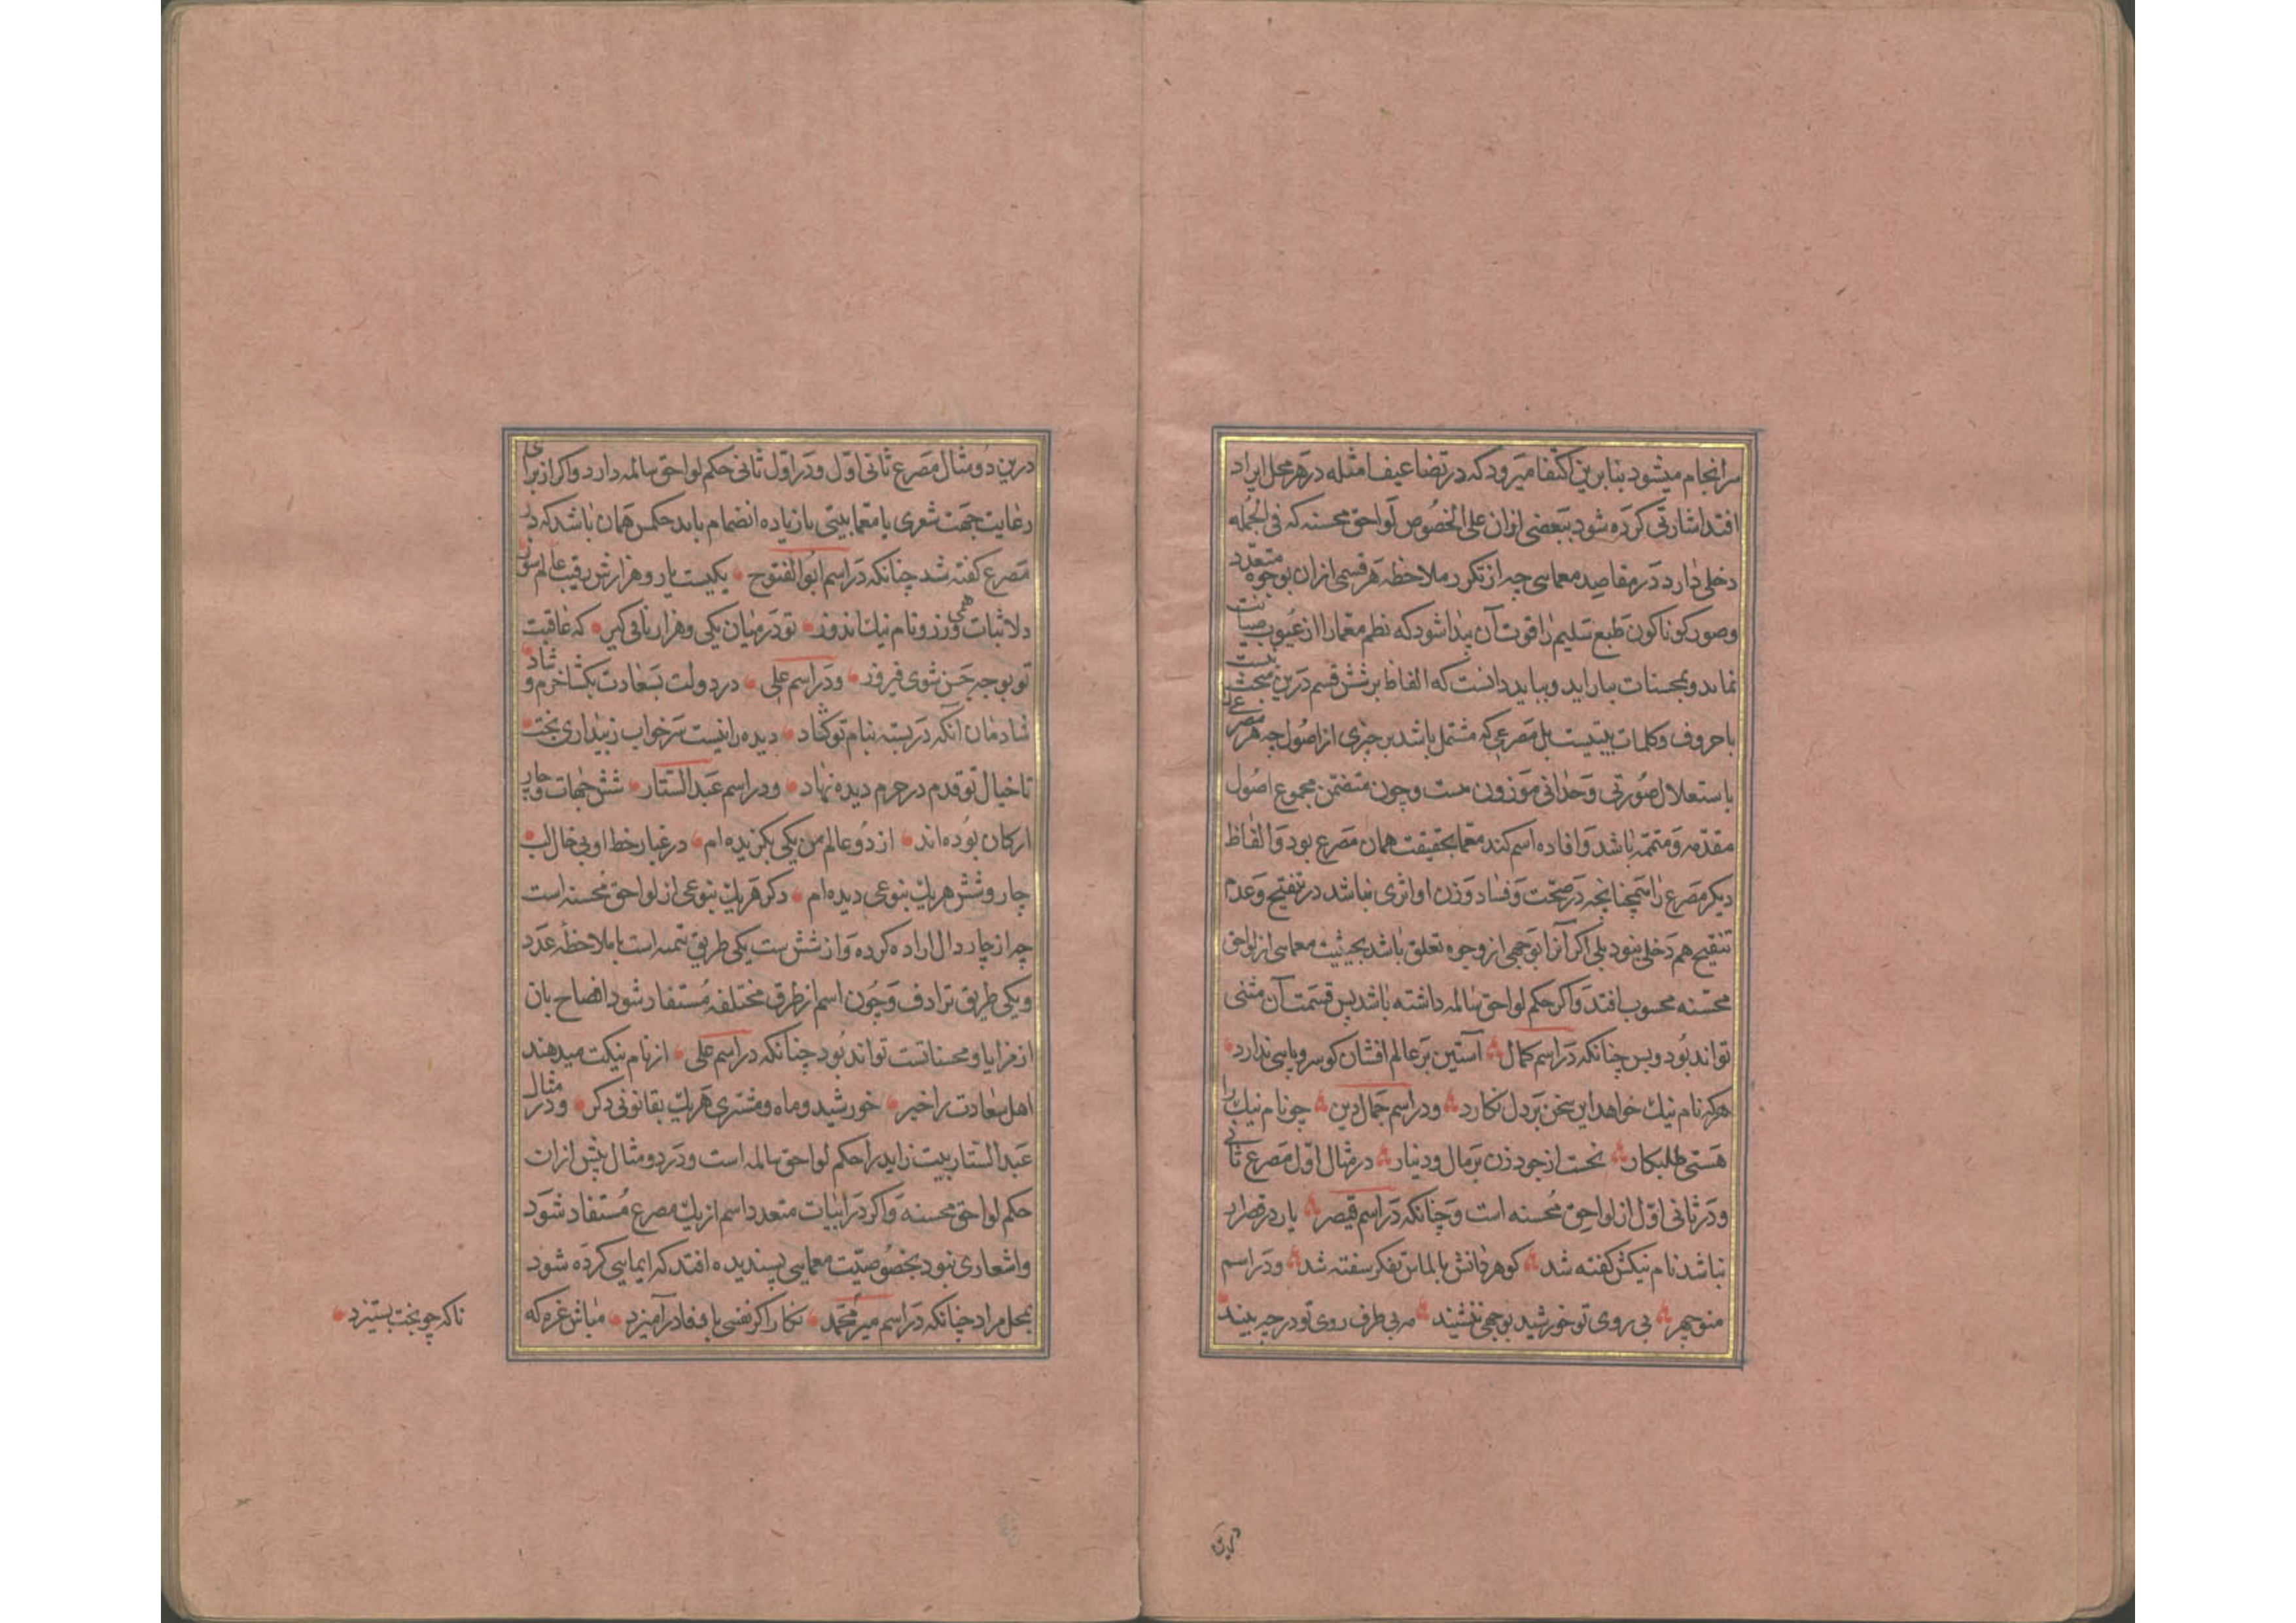 سرانجام میشود بنابرین اکتفا میرود که در تضاعیف امثله در هر محل ایراد
افتد اشارتی کرده شود ببعضی ازان علی الخصوص لواحق محسنه که فی الجمله
دخلی دارد در مقاصد معمایی چه از تکرر ملاحظه هر قسمی ازان بوجوه متعدد
وصور کوناکون طبع سلیم را قوت آن پیدا شود که نظم معما را از عیوب صیانت
نماید و بمحسنات بیاراید و بباید دانست که الفاظ بر شش قسم درین مبحث نیست
با حروف و کلمات بیتیست بل مصرعی که مشتمل باشد بر جزی از اصول چه هر مصرعی
باستعلال صورتی وحدانی موزون هست و چون متضمن مجموع اصول
مقدمه و متممه باشد و افاده اسم کند معما بحقیقت همان مصرع بود و الفاظ
دیکر مصرع را همچنانچه در صحت و فساد وزن او اثری نباشد در تنقیح و عدم
تنقیح هم دخلی نبود بلی اکر آنرا بوجهی از وجوه تعلق باشد بحیثیت معمایی از لواحق
محسنه محسوب افتد و اکر حکم لواحق سالمه داشته باشد پس قسمت آن مثنی
تواند بود و بس چنانکه در اسم کمال آستین بر عالم افشان کو سر و پایی ندارد
هرکه نام نیک خواهد این سخن بر دل نکارد و در اسم جمال دین چو نام نیک را
هستی طلبکار نخست از جود زن بر مال و دینار در مثال اول مصرع ثانی
و در ثانی اول از لواحق محسنه است و چنانکه در اسم قیصر یار در قصر ار
نباشد نام نیکش کفته شد کوهر دانش بالماس تفکر سفته شد و در اسم
منوچهر بی روی تو خورشید بوجهی ننشیند مه بی طرف روی تو در چه بیند
درین دو مثال مصرع ثانی اول و در اول ثانی حکم لواحق سالمه دارد و اکر از برای
رعایت جهت شعری یا معما بیتی یا زیاده انضمام یابد حکمش همان باشد که در
مصرع کفته شد چنانکه در اسم ابوالفتوح یکیست یار و هزارش رقیب عالم سوز
دلا ثبات همی ورز و نام نیک اندوز تو در میان یکی و هزار یا فی کیر که عاقبت
تو بوجه حسن شوی فیروز و در اسم علی در دولت بسعادت بکشا خرم و شاد
شادمان آنکه در بسته بنام تو کشاد دیده را نیست سر خواب ز بیداری بخت
تا خیال تو قدم در حرم دیده نهاد و در اسم عبد الستار شش جهات و چار
ارکان بوده اند از دو عالم من یکی بکزیده ام در غبار خط او بی خال لب
چار و شش هر یک بنوعی دیده ام دکر هر یک بنوعی از لواحق محسنه است
چه از چار دال اراده کرده و از شش ست یکی طریق تتمه است با ملاحظه عدد
و یکی طریق ترادف و چون اسم از طرق مختلفه مستفاد شود افصاح بان
از مزایا و محسناتست تواند بود چنانکه در اسم علی از نام نیکت میدهند
اهل سعادت را خبر خورشید و ماه و مشتری هر یک بقانونی دکر و در مثال
عبد الستار بیت زاید را حکم لواحق سالمه است و در دو مثال پیش ازان
حکم لواحق محسنه و اکر در ابیات متعدد اسم از یک مصرع مستفاد شود
و اشعاری نبود بخصوصیت معمایی پسندیده افتد که ایمایی کرده شود
بمحل مراد چنانکه در اسم میر محمد نکار اکر نفسی با فقاد رآمیزد مباش غره که
ناکه چو بخت بستیزد